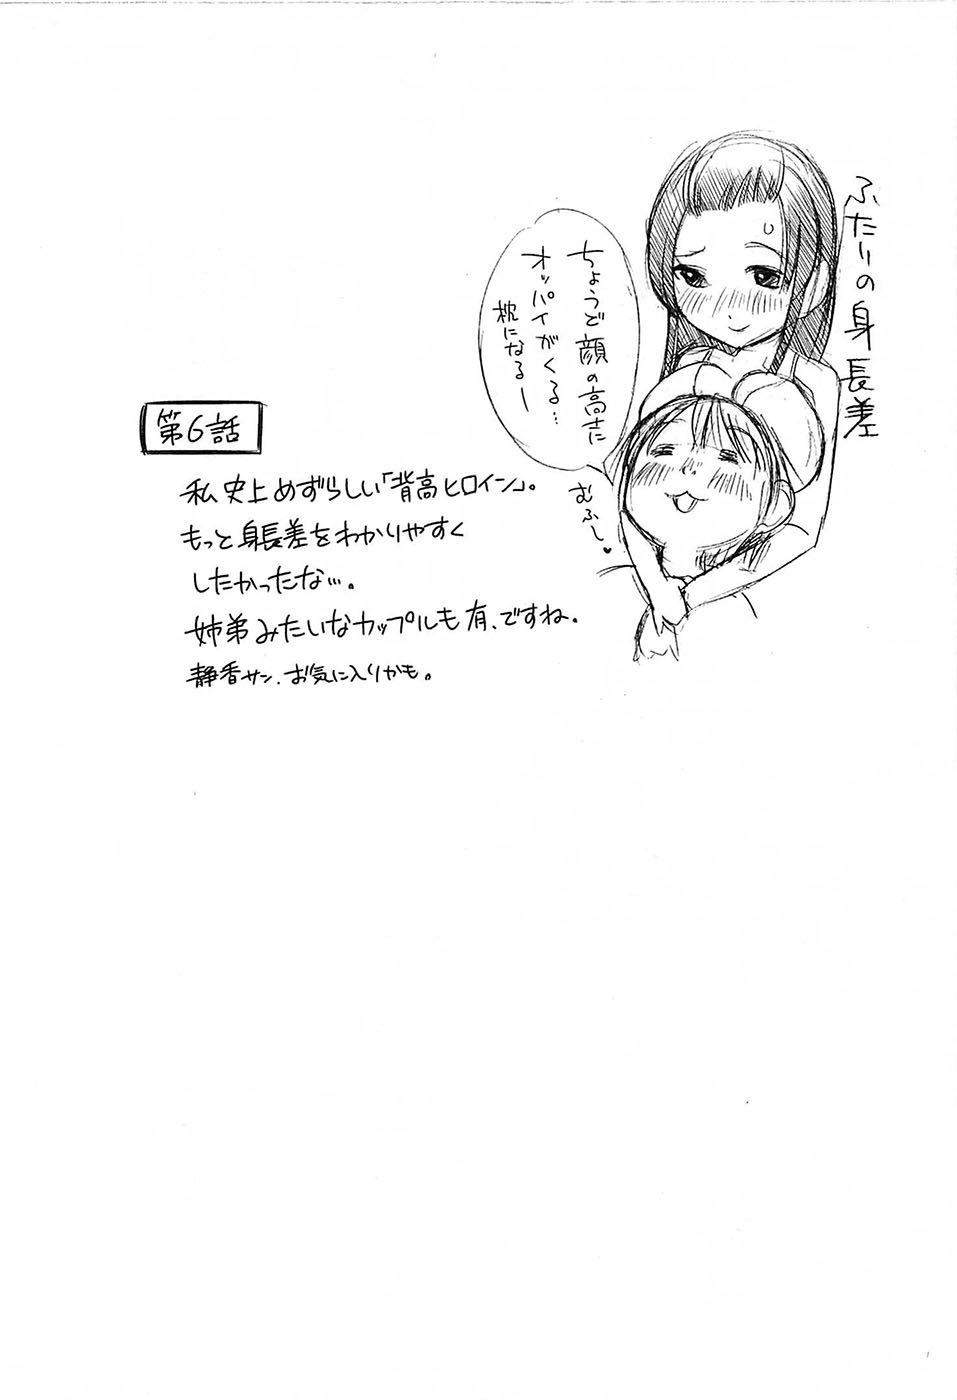 ふたりの身長差
ちょうど顔の高さに
オッパイがくる…
枕になるー
むふー♥
第6話
私史上めずらしい「背高ヒロイン」。
もっと身長差をわかりやすく
したかったな…。
姉弟みたいなカップルも有、ですね。
静香サン、お気に入りかも。